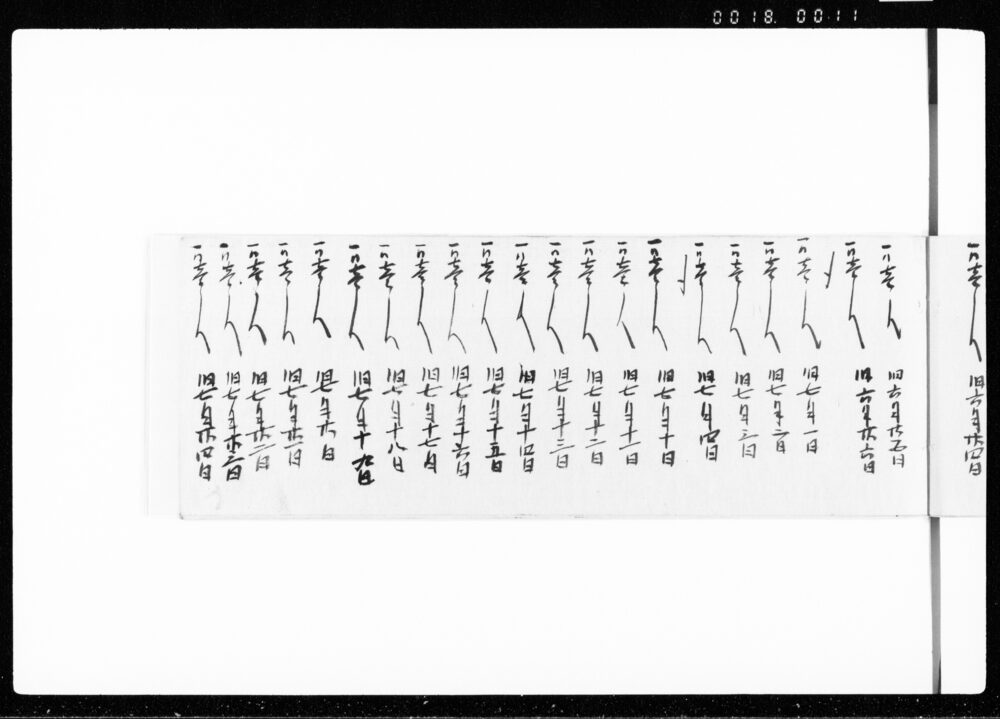 0018. 0011
一 壱人 旧六月廿四日
一 壱人 旧六月廿五日
一 壱人 旧六月廿六日
一 壱人 旧七月一日
一 壱人 旧七月二日
一 壱人 旧七月三日
一 壱人 旧七月四日
一 壱人 旧七月十日
一 壱人 旧七月十一日
一 壱人 旧七月十二日
一 壱人 旧七月十三日
一 壱人 旧七月十四日
一 壱人 旧七月十五日
一 壱人 旧七月十六日
一 壱人 旧七月十七日
一 壱人 旧七月十八日
一 壱人 旧七月十九日
一 壱人 旧七月廿日
一 壱人 旧七月廿一日
一 壱人 旧七月廿二日
一 壱人 旧七月廿三日
一 壱人 旧七月廿四日